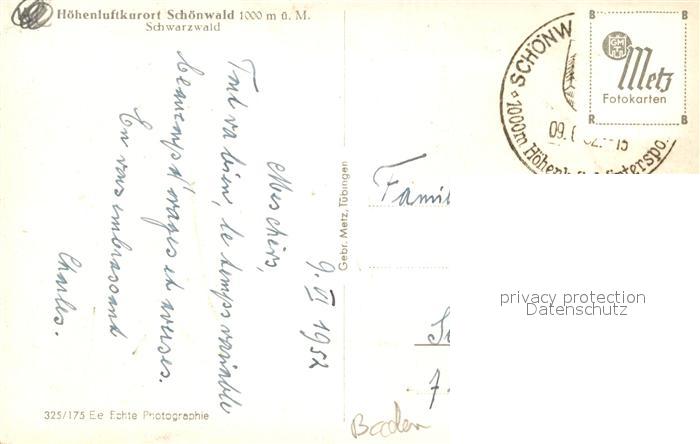 Höhenluftkurort Schönwald 1000 m ü. M.
Schwarzwald
9. VI 1952
Mes chers,
Tout va bien, le temps variable
beaucoup d'orages et averses.
En vous embrassant
Charles.
325/175 Ee Echte Photographie
Gebr. Metz, Tübingen
SCHÖNW
1000m Höhenl
terspo
09.
B B
Metz
Fotokarten
R B
Famil
7.
Baden
privacy protection
Datenschutz